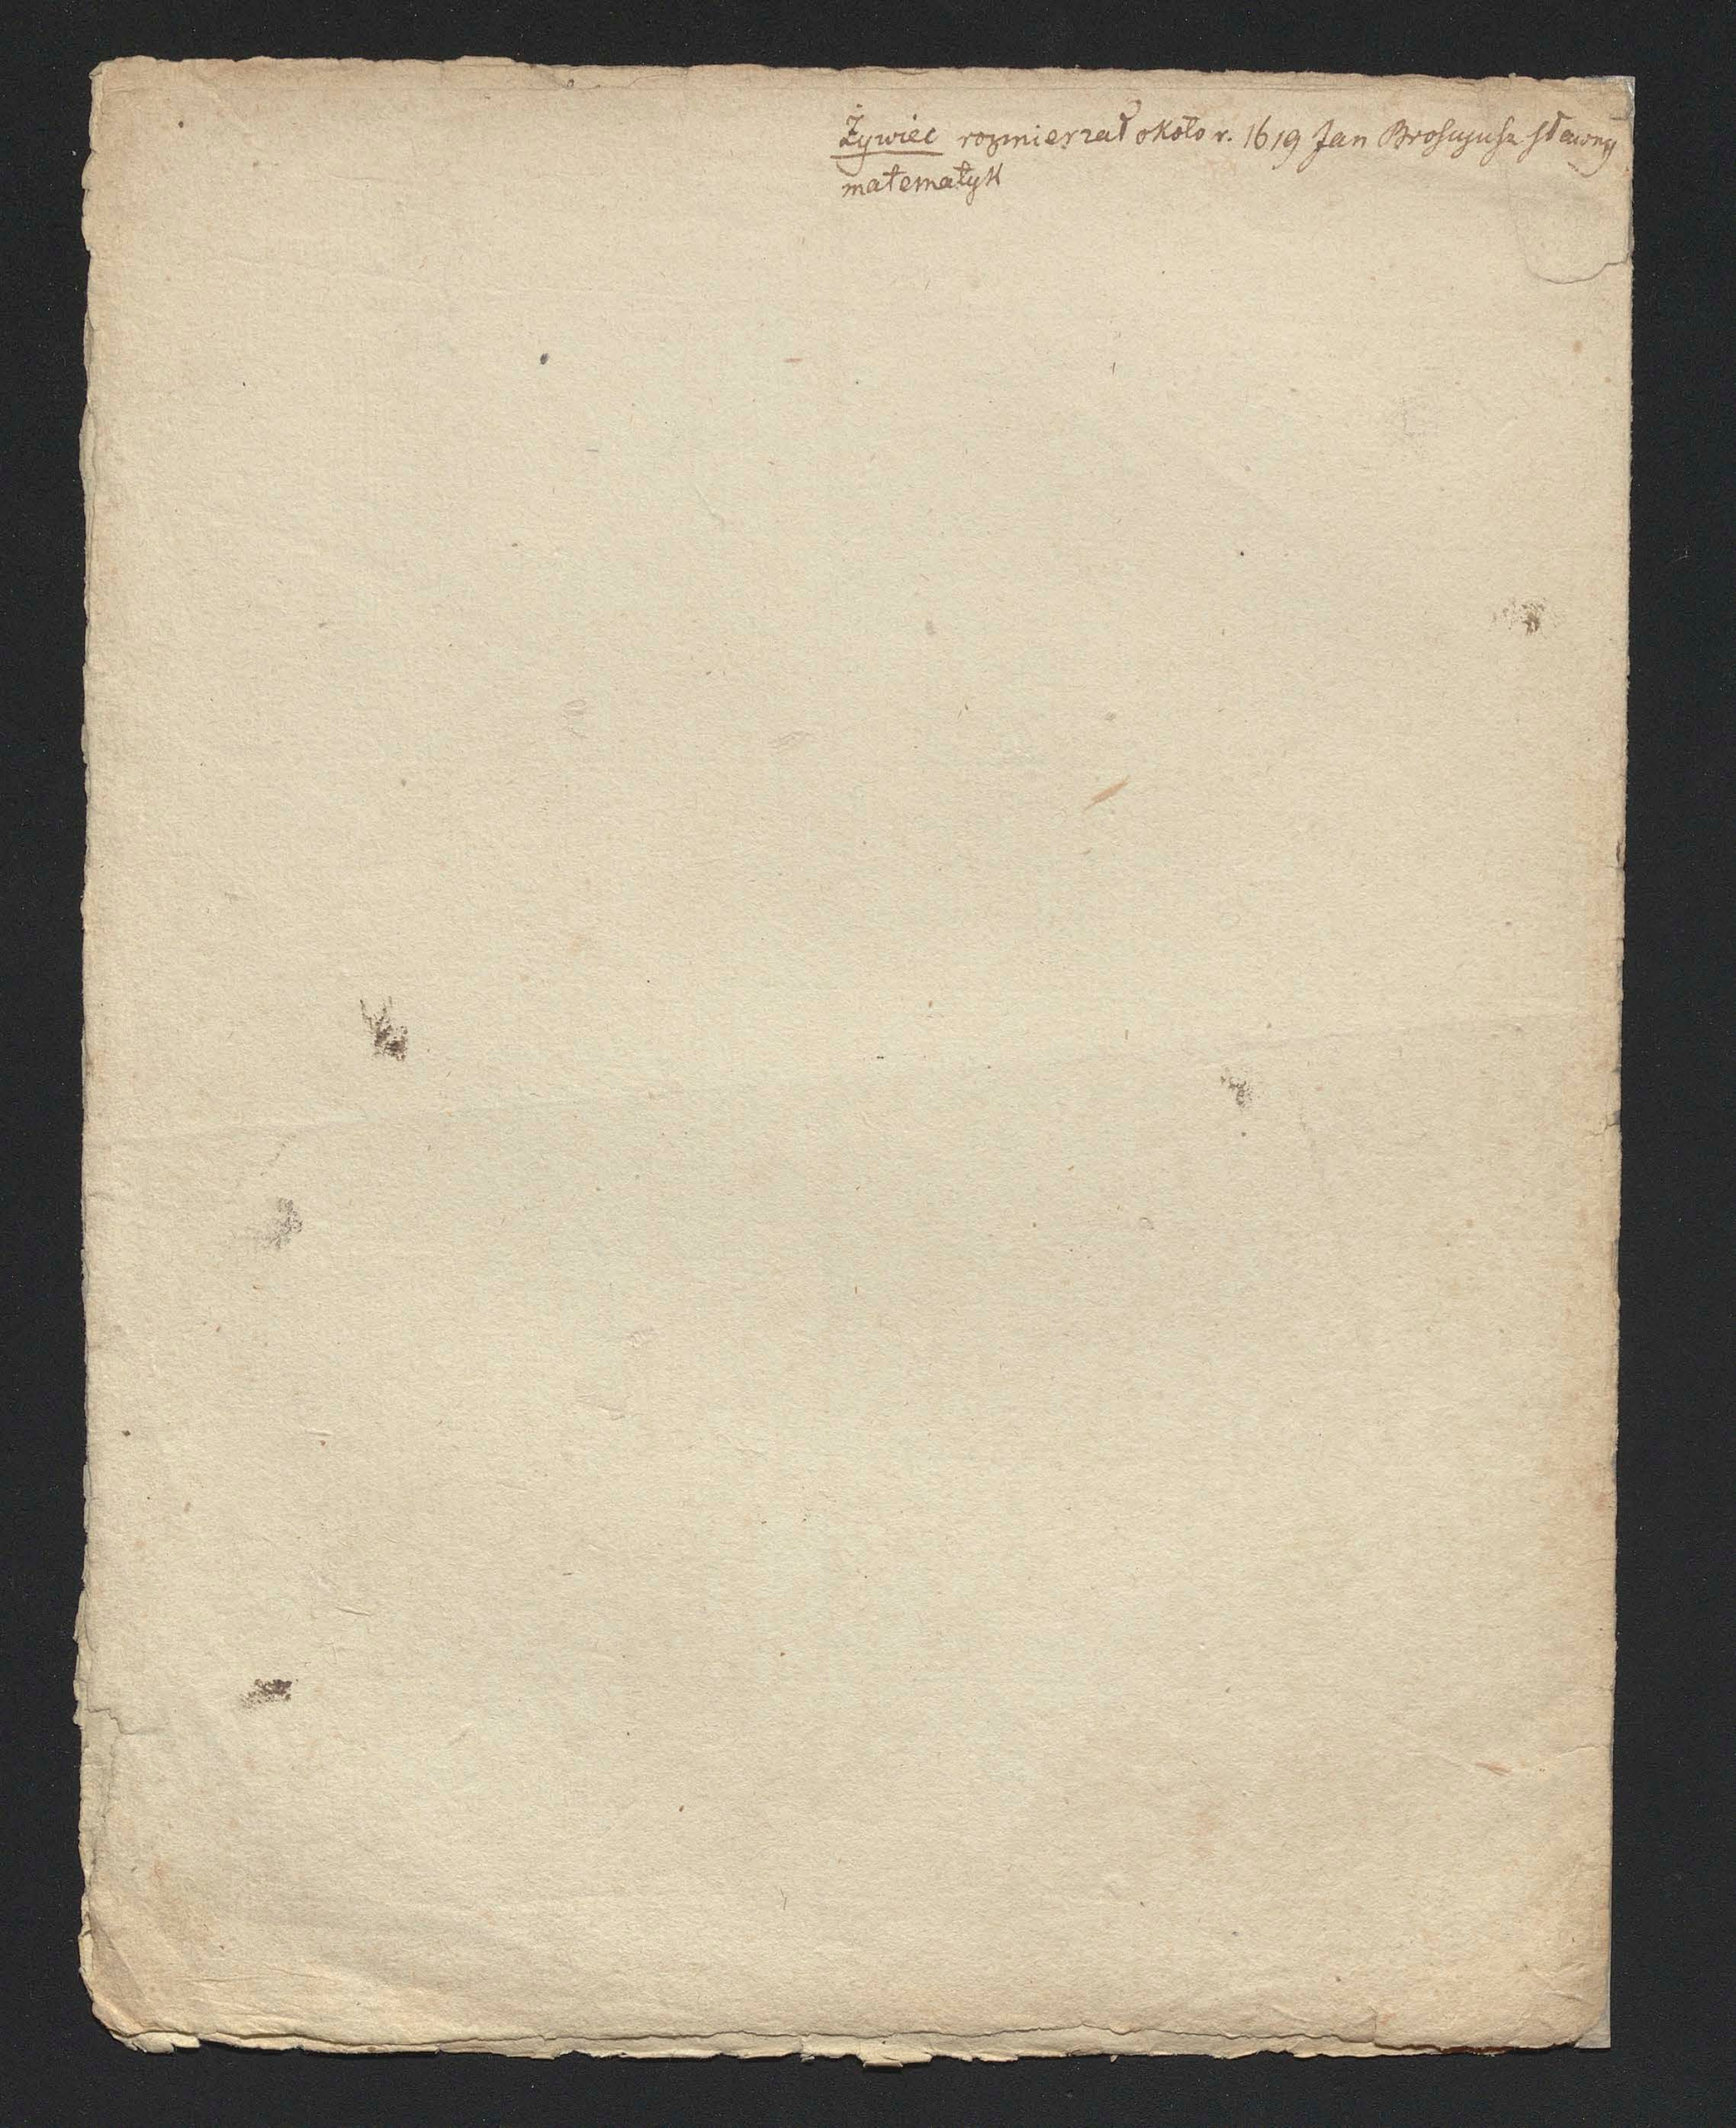 Żywiec rozmierzał około r. 1619 Jan Brosyusz sławny
matematyk